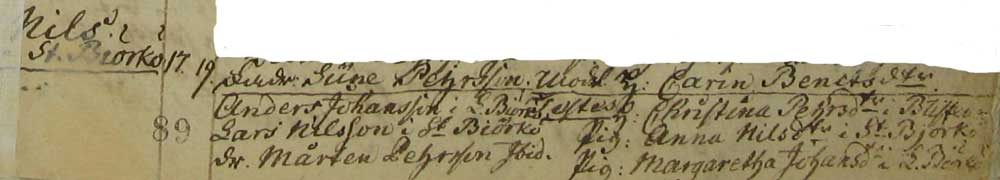 Nils
St. Biorkö 17. 19. Fadr. Süne Pehrsson. Mod. Carin Bencts dtr
Anders Johansson i L. Biorkö Testes Christina Pehrsdtr i
89 Lars Nilsson i St Biörkö Pig: Anna Nilsdtr i St. Björkö
dr. Mårten Pehrsson Ibid. Pig: Margaretha Johansdtr i L. Biörkö